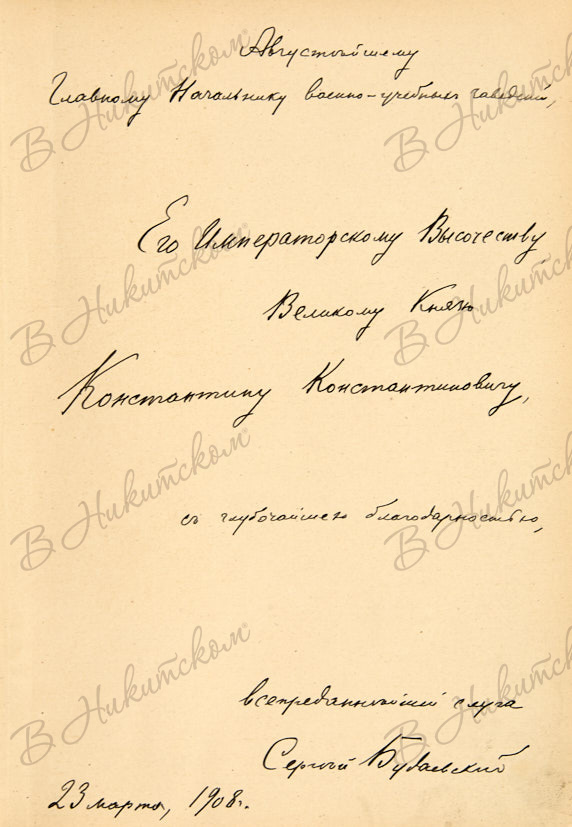 Августѣйшему
Главному Начальнику военно-учебныхъ заведеній,
Его Императорскому Высочеству
Великому Князю
Константину Константиновичу,
съ глубочайшею благодарностью,
всепреданнѣйшій слуга
Сергѣй
23 марта, 1908 г.
В Никитском
В Никитском
В Никитском
В Никитском
В Никитском
В Никитском
В Никитском
В Никитском